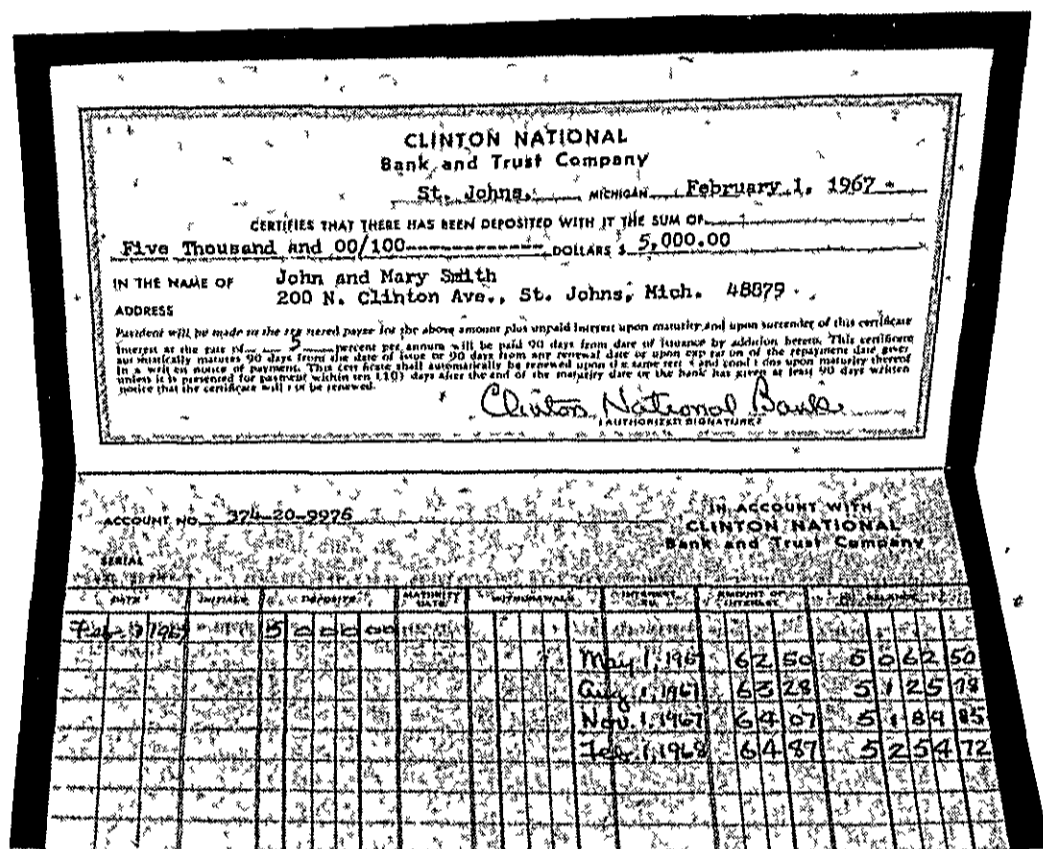 CLINTON NATIONAL
Bank and Trust Company
St. Johns, MICHIGAN February 1, 1967
CERTIFIES THAT THERE HAS BEEN DEPOSITED WITH IT THE SUM OF
Five Thousand and 00/100------------- DOLLARS $ 5,000.00
IN THE NAME OF John and Mary Smith
200 N. Clinton Ave., St. Johns, Mich. 48879
ADDRESS
Payment will be made to the registered payee for the above amount plus unpaid interest upon maturity and upon surrender of this certificate
Interest at the rate of 5 percent per annum will be paid 90 days from date of issuance by addition hereto. This certificate
automatically matures 90 days from the date of issue or 90 days from any renewal date or upon expiration of the repayment date given
in a written notice of payment. This certificate shall automatically be renewed upon the same terms and conditions upon maturity thereof
unless it is presented for payment within ten (10) days after the end of the maturity date or the bank has given at least 90 days written
notice that the certificate will not be renewed.
Clinton National Bank
AUTHORIZED SIGNATURE
ACCOUNT NO. 374-20-9976
IN ACCOUNT WITH
CLINTON NATIONAL
Bank and Trust Company
SERIAL
DATE INITIALS DEPOSITS MATURITY DATE WITHDRAWALS INTEREST TO AMOUNT OF INTEREST BALANCE
Feb 1 1967 5 000 00
May 1, 1967 62 50 5 062 50
Aug 1, 1967 63 28 5 125 78
Nov. 1, 1967 64 07 5 189 85
Feb. 1, 1968 64 87 5 254 72